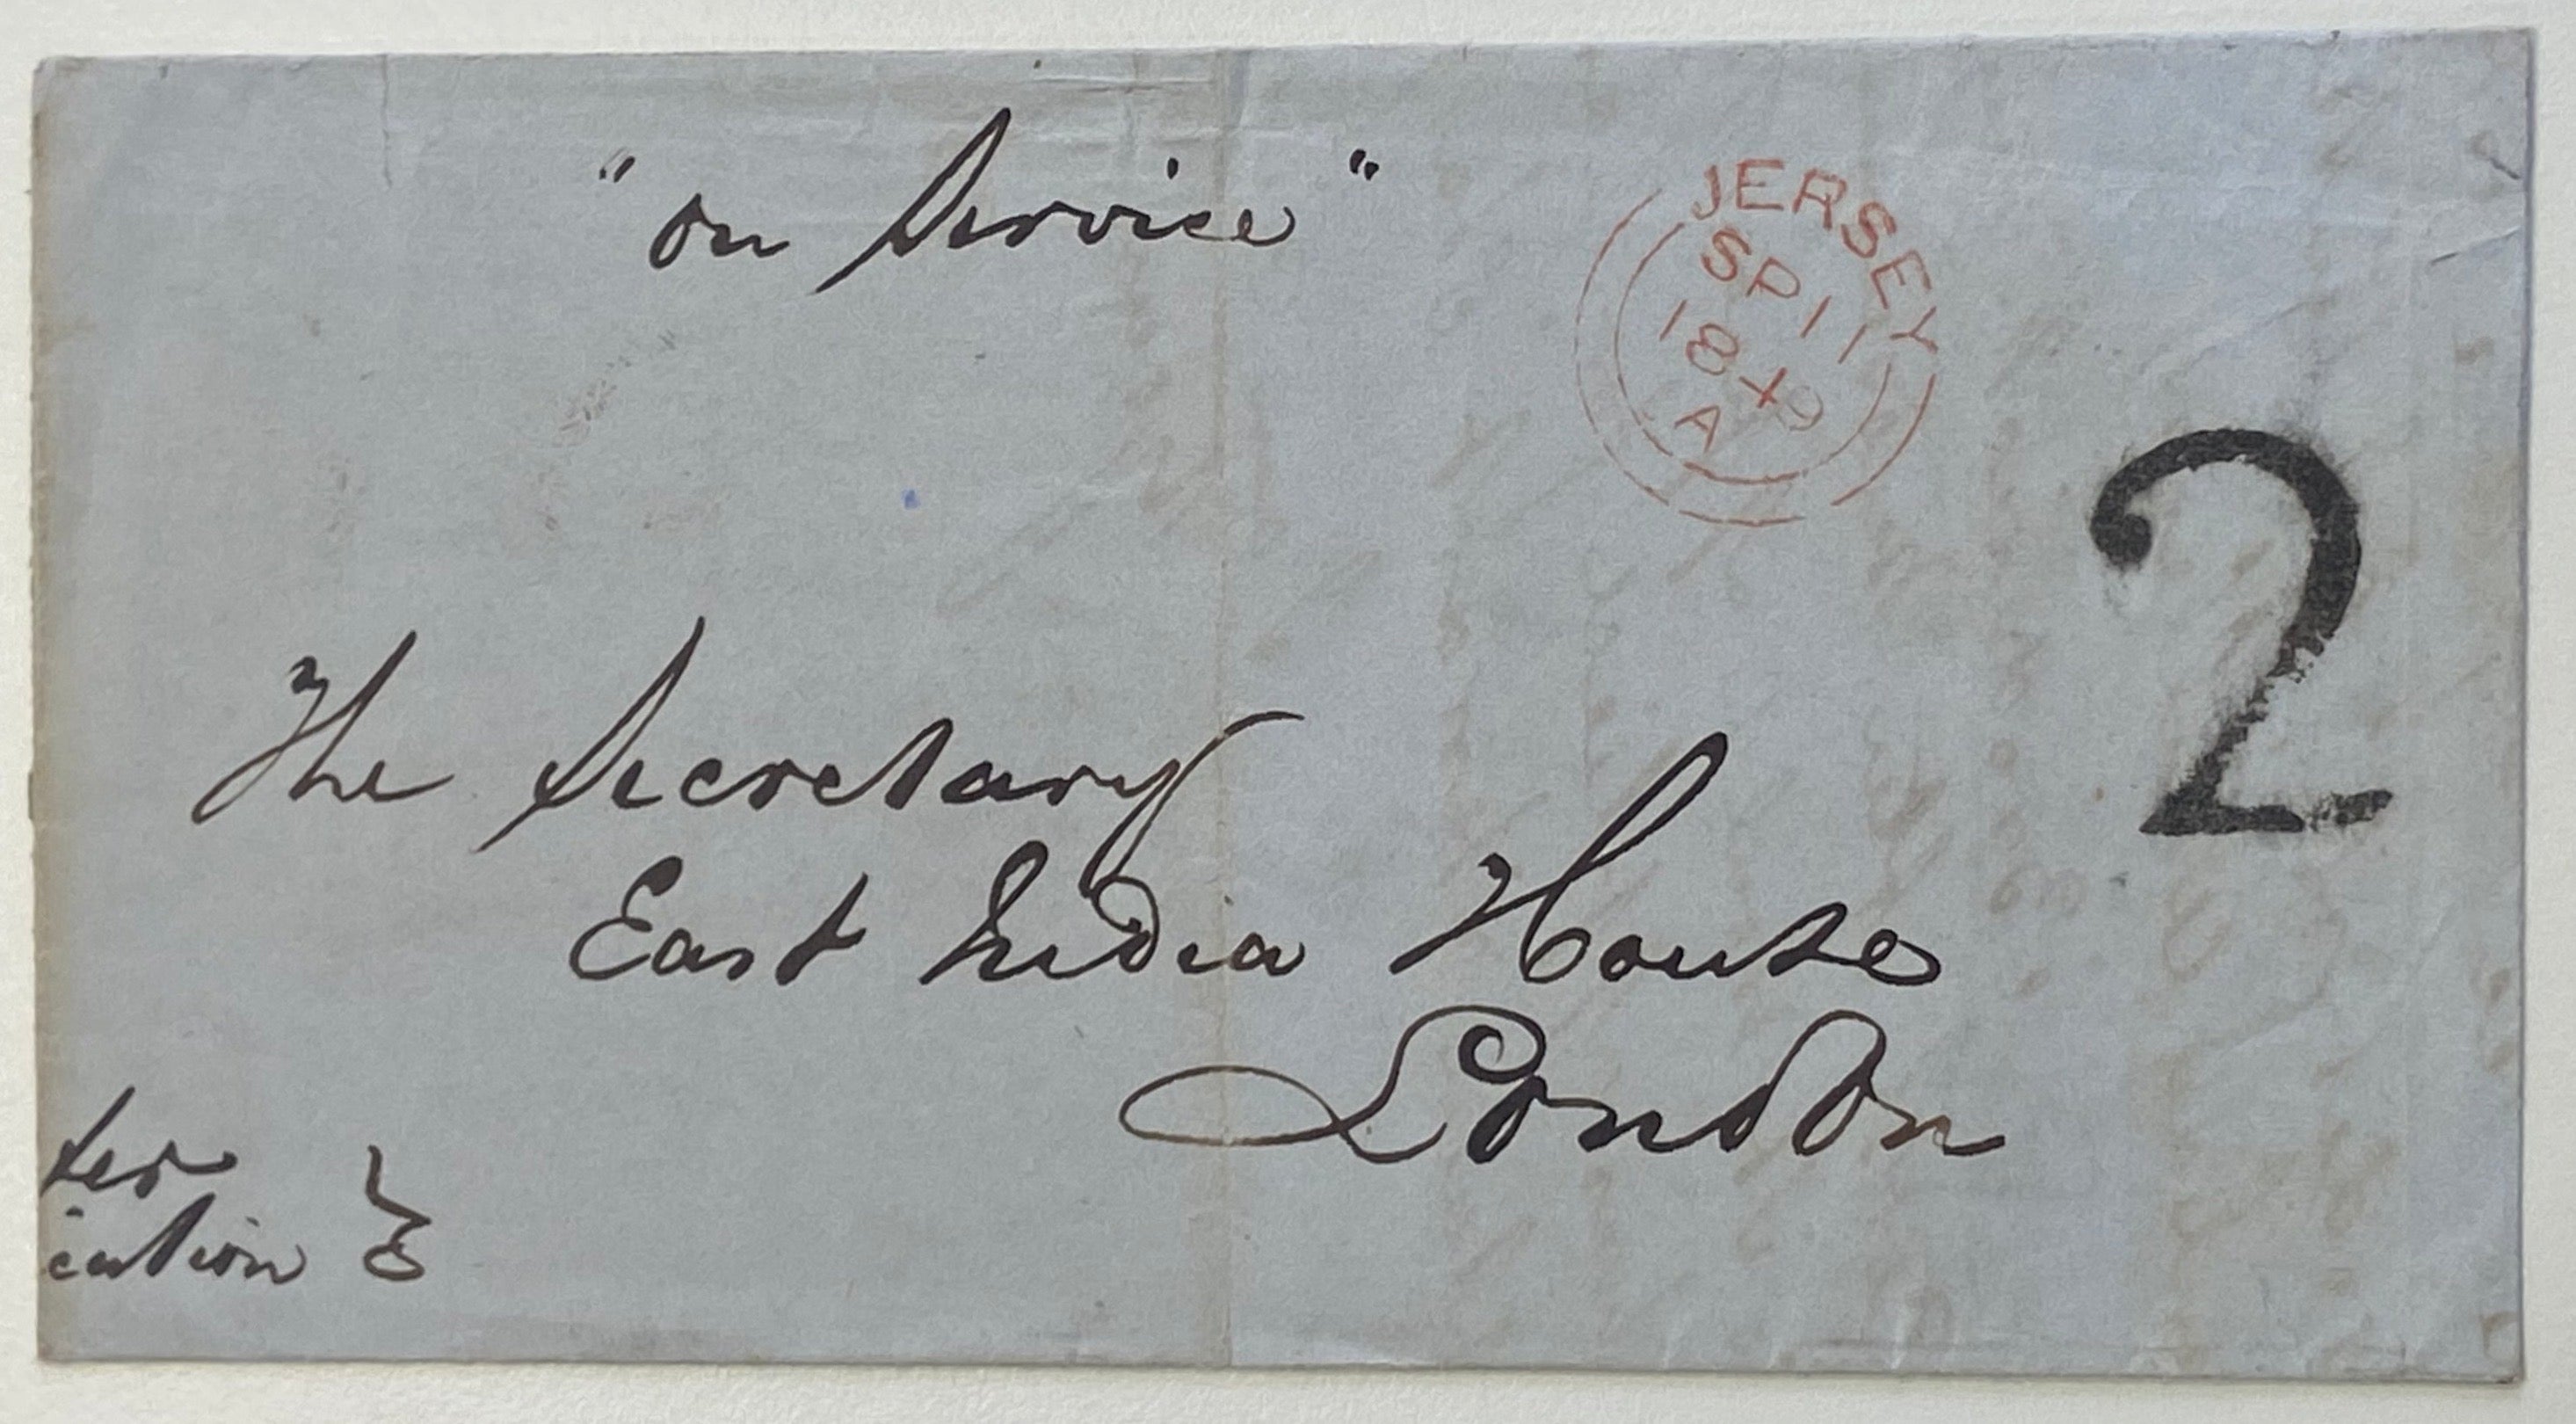 "on Service"
JERSEY
SP 11
1849
A
2
The Secretary
East India House
London
ter
cation }